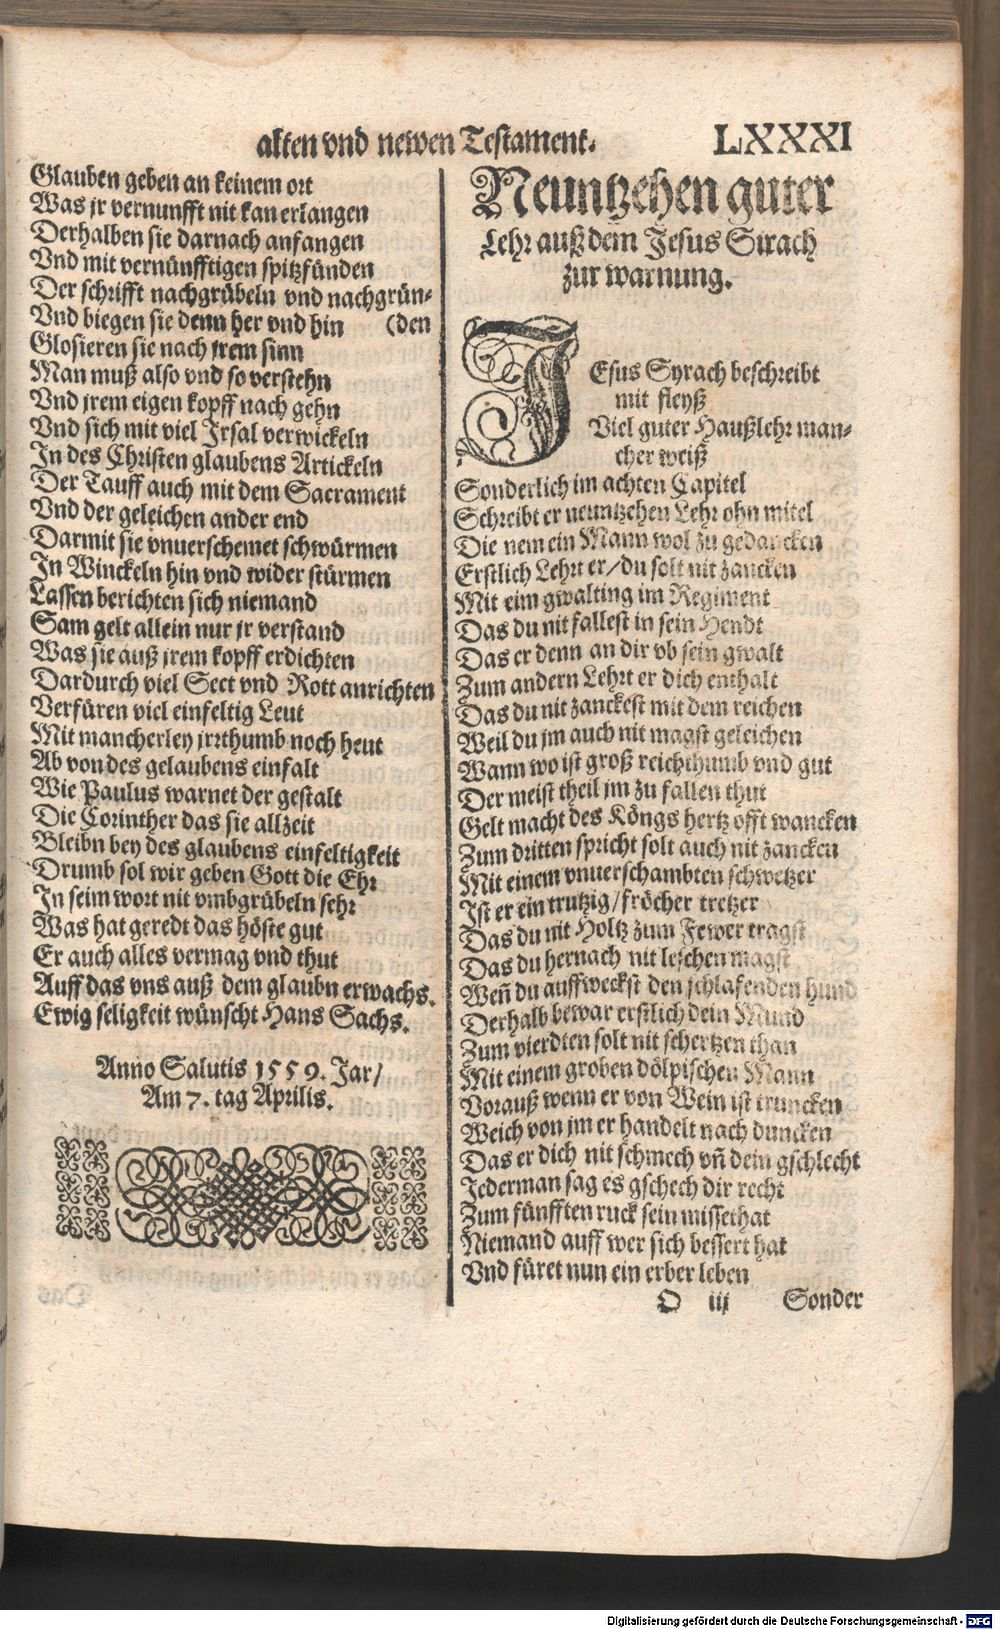 alten vnd newen Testament. LXXXI
Glauben geben an keinem ort
Was jr vernunfft nit kan erlangen
Derhalben sie darnach anfangen
Vnd mit vernünfftigen spitzfünden
Der schrifft nachgrübeln vnd nachgrün-
Vnd biegen sie denn her vnd hin (den
Glosieren sie nach jrem sinn
Man muß also vnd so verstehn
Vnd jrem eigen kopff nach gehn
Vnd sich mit viel Irsal verwickeln
In des Christen glaubens Artickeln
Der Tauff auch mit dem Sacrament
Vnd der geleichen ander end
Darmit sie vnuerschemet schwürmen
In Winckeln hin vnd wider stürmen
Lassen berichten sich niemand
Sam gelt allein nur jr verstand
Was sie auß jrem kopff erdichten
Dardurch viel Sect vnd Rott anrichten
Verfüren viel einfeltig Leut
Mit mancherley jrrthumb noch heut
Ab von des gelaubens einfalt
Wie Paulus warnet der gestalt
Die Corinther das sie allzeit
Bleibn bey des glaubens einfeltigkeit
Drumb sol wir geben Gott die Ehr
In seim wort nit vmbgrübeln sehr
Was hat geredt das höste gut
Er auch alles vermag vnd thut
Auff das vns auß dem glaubn erwachs.
Ewig seligkeit wünscht Hans Sachs.
Anno Salutis 1559. Jar/
Am 7. tag Aprilis.
Neuntzehen guter
Lehr auß dem Jesus Sirach
zur warnung.
JEsus Syrach beschreibt
mit fleyß
Viel guter Haußlehr man-
cher weiß
Sonderlich im achten Capitel
Schreibt er neuntzehen Lehr ohn mitel
Die nem ein Mann wol zu gedancken
Erstlich Lehrt er/du solt nit zancken
Mit eim gwalting im Regiment
Das du nit fallest in sein Hendt
Das er denn an dir vb sein gwalt
Zum andern Lehrt er dich enthalt
Das du nit zanckest mit dem reichen
Weil du jm auch nit magst geleichen
Wann wo ist groß reichthumb vnd gut
Der meist theil jm zu fallen thut
Gelt macht des Köngs hertz offt wancken
Zum dritten spricht solt auch nit zancken
Mit einem vnuerschambten schwetzer
Ist er ein trutzig/fröcher tretzer
Das du nit Holtz zum Fewer tragst
Das du hernach nit leschen magst
Weñ du auffweckst den schlafenden hund
Derhalb bewar erstlich dein Mund
Zum vierdten solt nit schertzen than
Mit einem groben dölpischen Mann
Vorauß wenn er von Wein ist truncken
Weich von jm er handelt nach duncken
Das er dich nit schmech vñ dein gschlecht
Jederman sag es gschech dir recht
Zum fünfften ruck sein missethat
Niemand auff wer sich bessert hat
Vnd füret nun ein erber leben
O iij Sonder
Digitalisierung gefördert durch die Deutsche Forschungsgemeinschaft - DFG